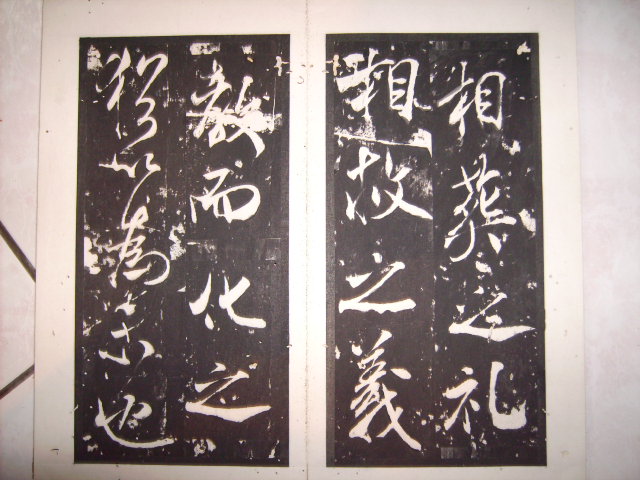 相葬之礼
相救之義
教而化之
猶以為未也